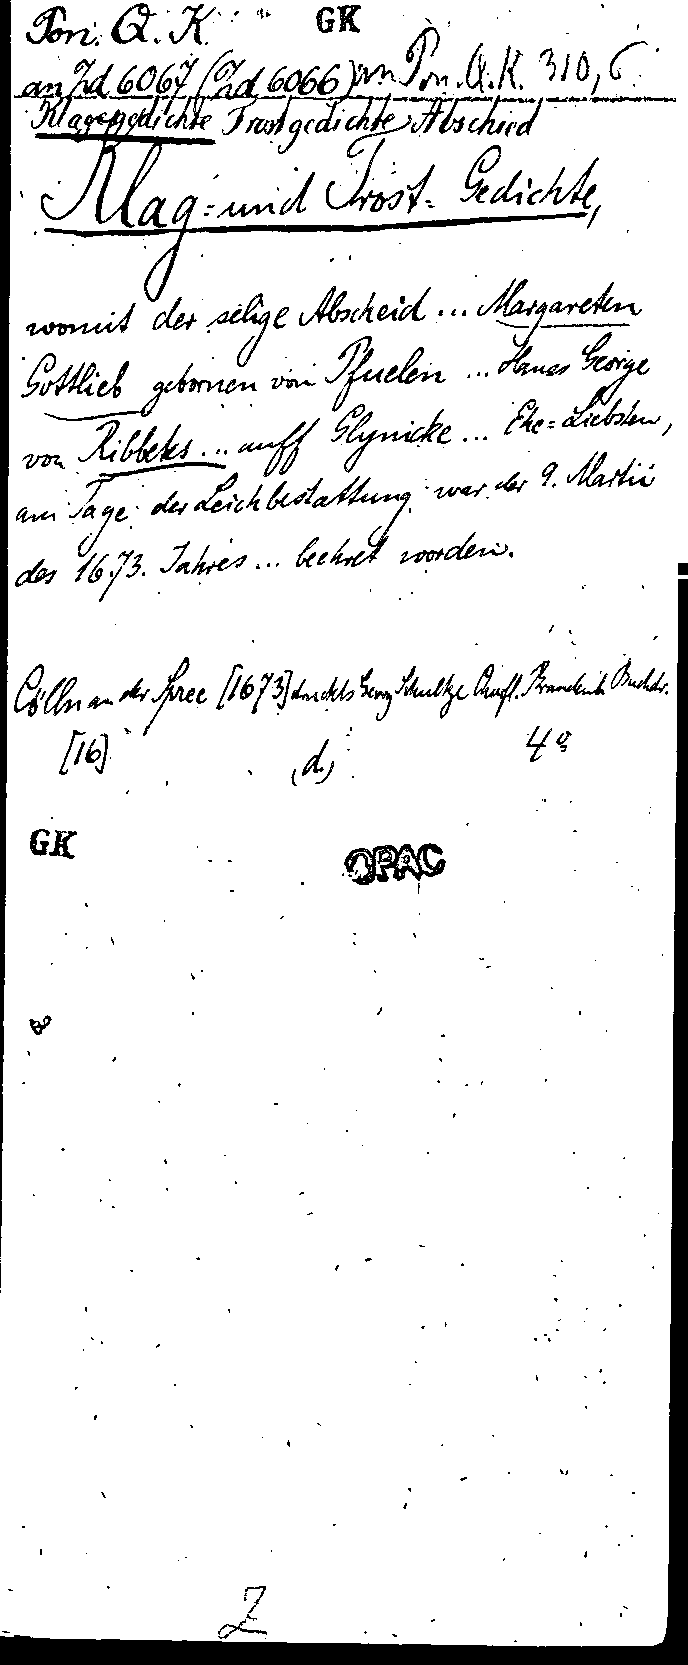 Pon. Q. K. GK
an Zd 6067 (Zd 6066) an Pon. Q. K. 310, 6
Klagegedichte Trostgedichte Abschied
Klag= und Trost= Gedichte,
womit der selige Abscheid ... Margareten
Gottlieb gebornen von Pfuelen ... Hanss George
von Ribbeks ... auff Glynicke ... Ehe= Liebsten,
am Tage der Leichbestattung war der 9. Martii
des 1673. Jahres ... beehret worden.
Cölln an der Spree [1673] druckts Georg Schultze Churfl. Brandenb. Buchdr.
[16] (d.) 4°
GK OPAC
Z